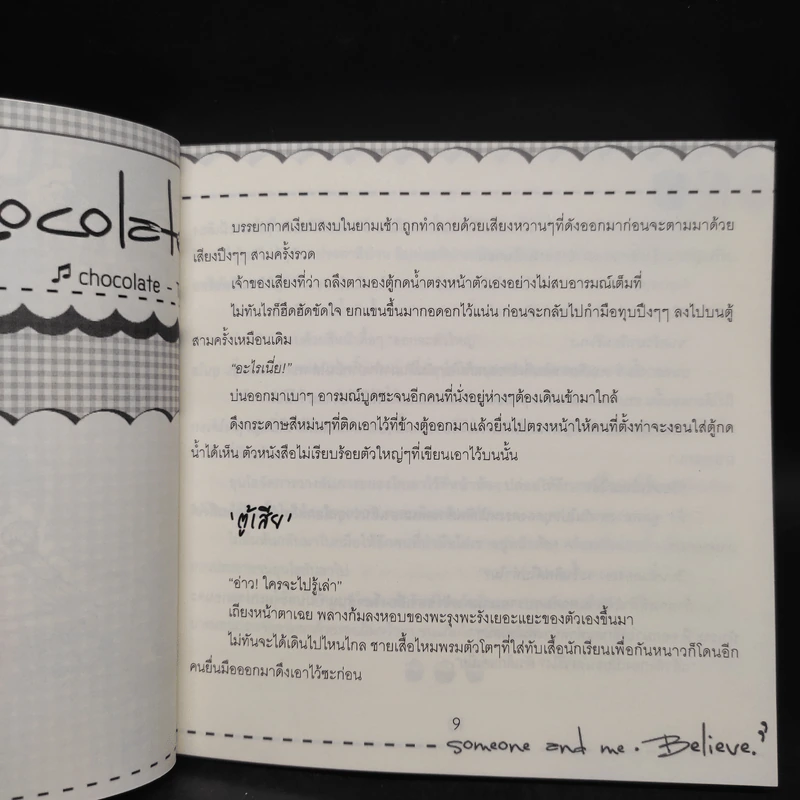 ocolat
♫ chocolate -
บรรยากาศเงียบสงบในยามเช้า ถูกทำลายด้วยเสียงหวานๆที่ดังออกมาก่อนจะตามมาด้วย
เสียงปึงๆๆ สามครั้งรวด
เจ้าของเสียงที่ว่า ถลึงตามองตู้กดน้ำตรงหน้าตัวเองอย่างไม่สบอารมณ์เต็มที่
ไม่ทันไรก็ฮึดฮัดขัดใจ ยกแขนขึ้นมากอดอกไว้แน่น ก่อนจะกลับไปกำมือทุบปึงๆๆ ลงไปบนตู้
สามครั้งเหมือนเดิม
“อะไรเนี่ย!”
บ่นออกมาเบาๆ อารมณ์บูดซะจนอีกคนที่นั่งอยู่ห่างๆต้องเดินเข้ามาใกล้
ดึงกระดาษสีหม่นๆที่ติดเอาไว้ที่ข้างตู้ออกมาแล้วยื่นไปตรงหน้าให้คนที่ตั้งท่าจะงอนใส่ตู้กด
น้ำได้เห็น ตัวหนังสือไม่เรียบร้อยตัวใหญ่ๆที่เขียนเอาไว้บนนั้น
'ตู้เสีย'
“อ่าว! ใครจะไปรู้เล่า”
เถียงหน้าตาเฉย พลางก้มลงหอบของพะรุงพะรังเยอะแยะของตัวเองขึ้นมา
ไม่ทันจะได้เดินไปไหนไกล ชายเสื้อไหมพรมตัวโตๆที่ใส่ทับเสื้อนักเรียนเพื่อกันหนาวก็โดนอีก
คนยื่นมือออกมาดึงเอาไว้ซะก่อน
9
someone and me. Believe.